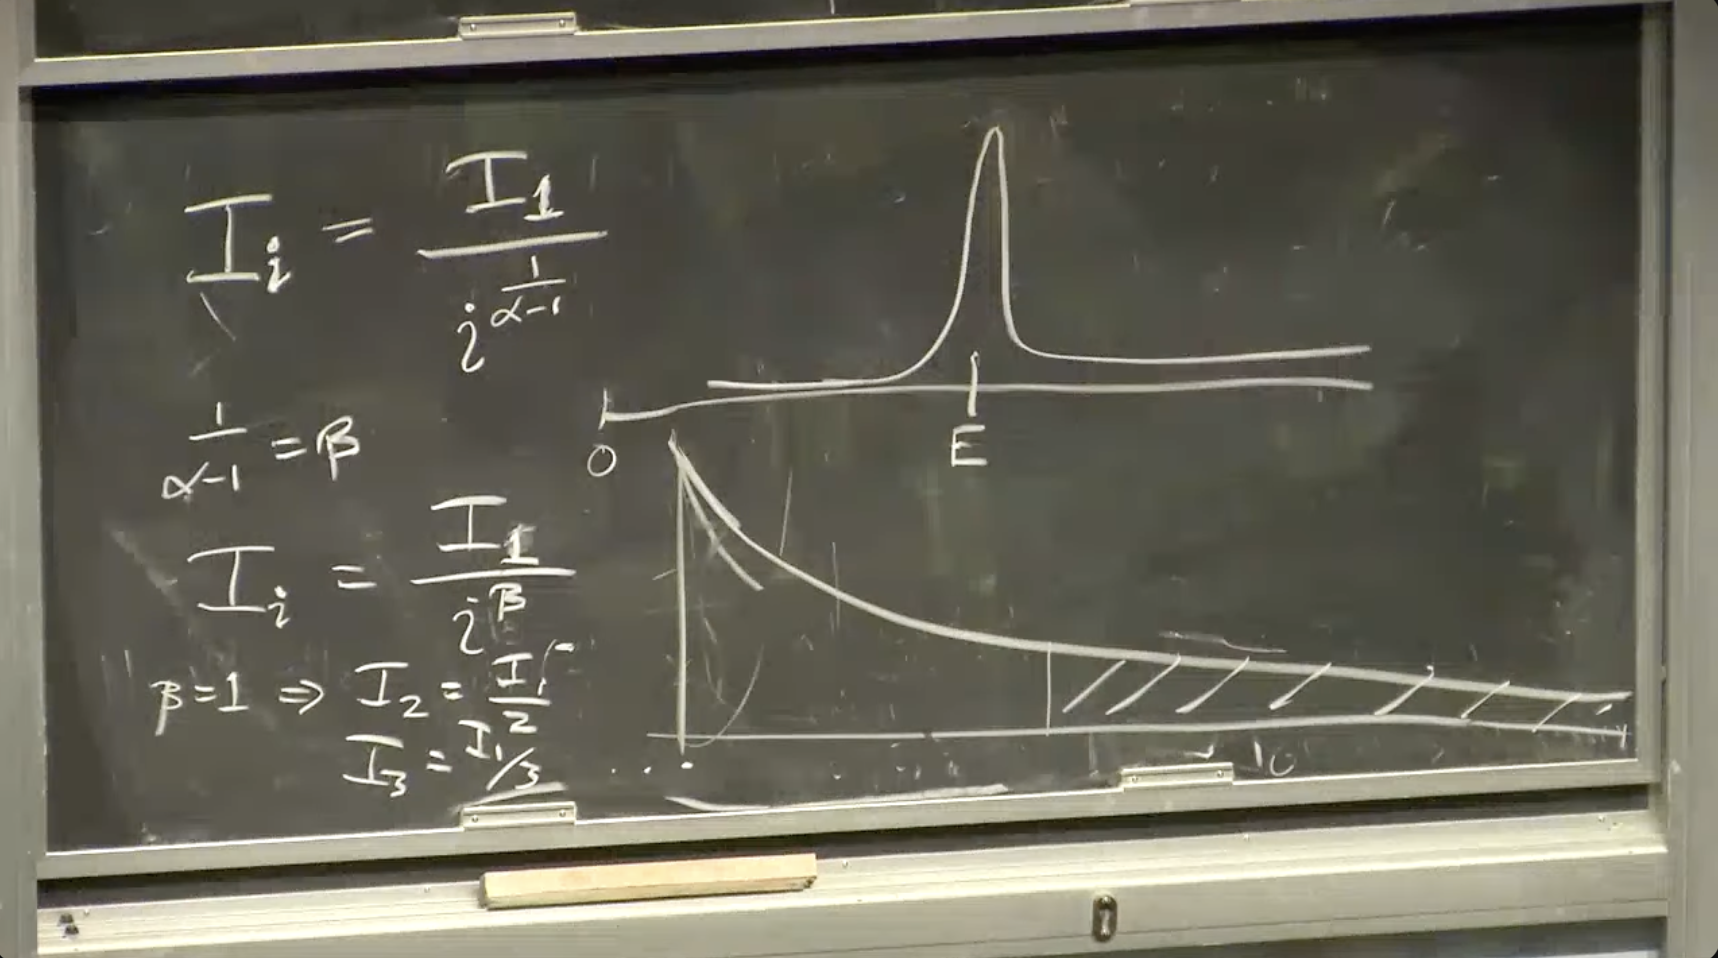 I_i = I_1 / i^(1/(α-1))
1/(α-1) = β
I_i = I_1 / i^β
β=1 ⇒ I_2 = I_1/2
I_3 = I_1/3
0
E